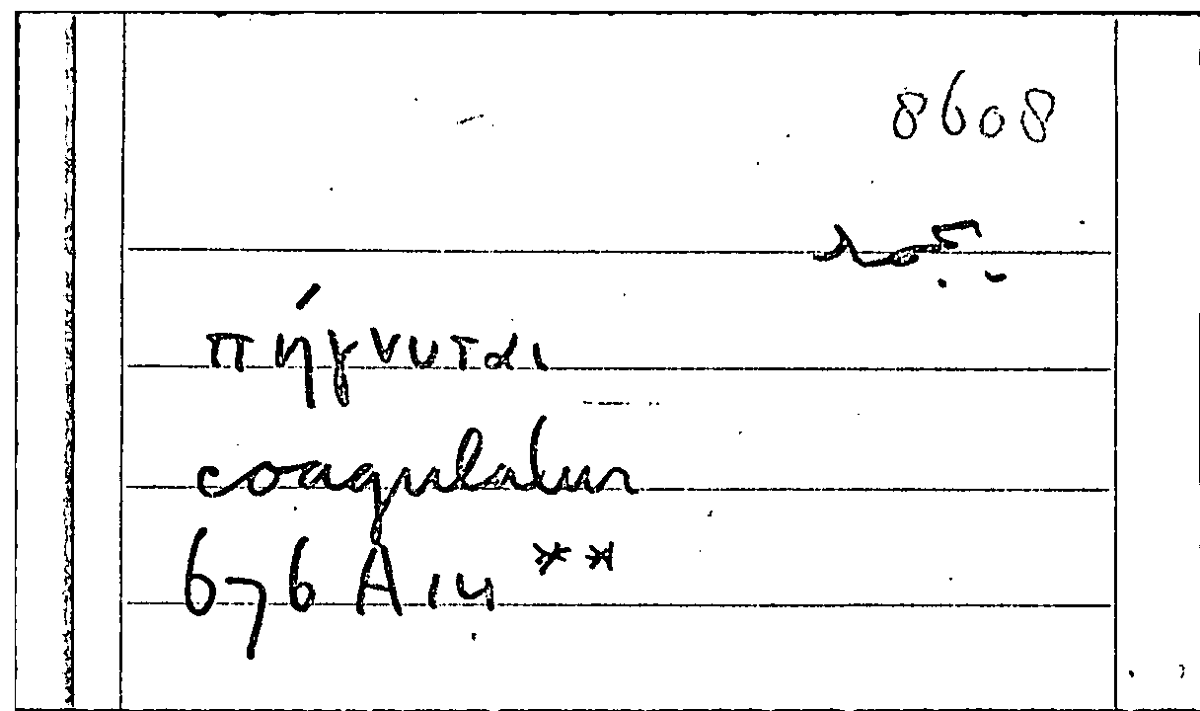 8608
يجمد
πήγνυται
coagulatur
676 A 14 **